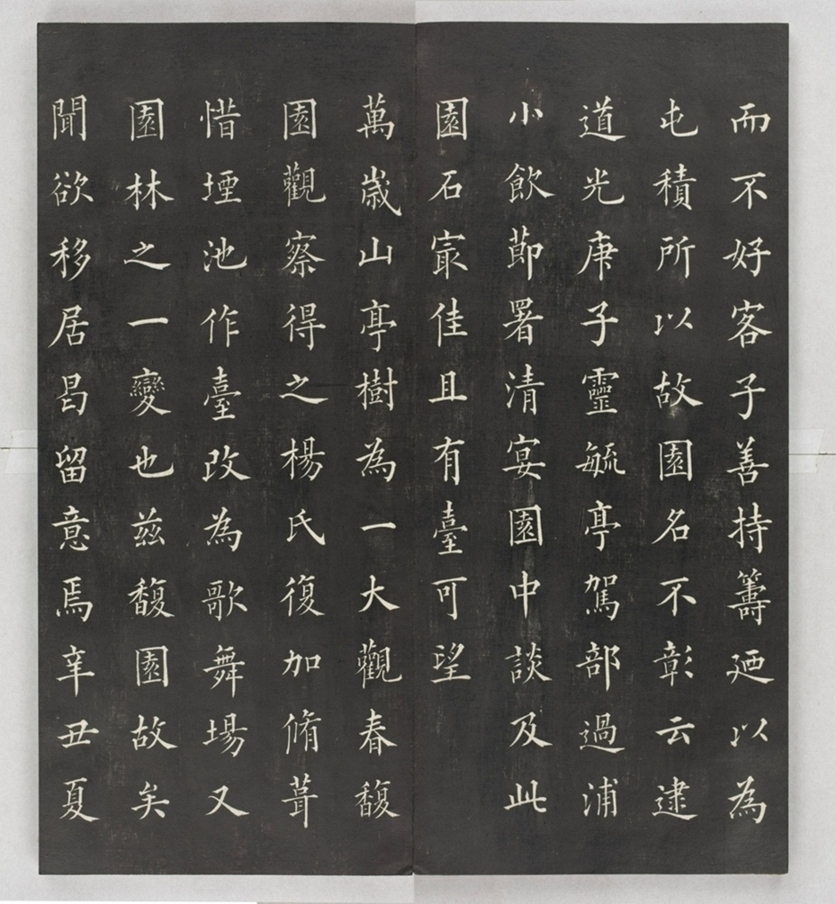 而不好客子善持籌廼以為
屯積所以故園名不彰云逮
道光庚子靈毓亭駕部過浦
小飲節署清宴園中談及此
園石㝡佳且有臺可望
萬歲山亭樹為一大觀春馥
園觀察得之楊氏復加脩葺
惜堙池作臺改為歌舞場又
園林之一變也茲馥園故矣
聞欲移居曷留意焉辛丑夏